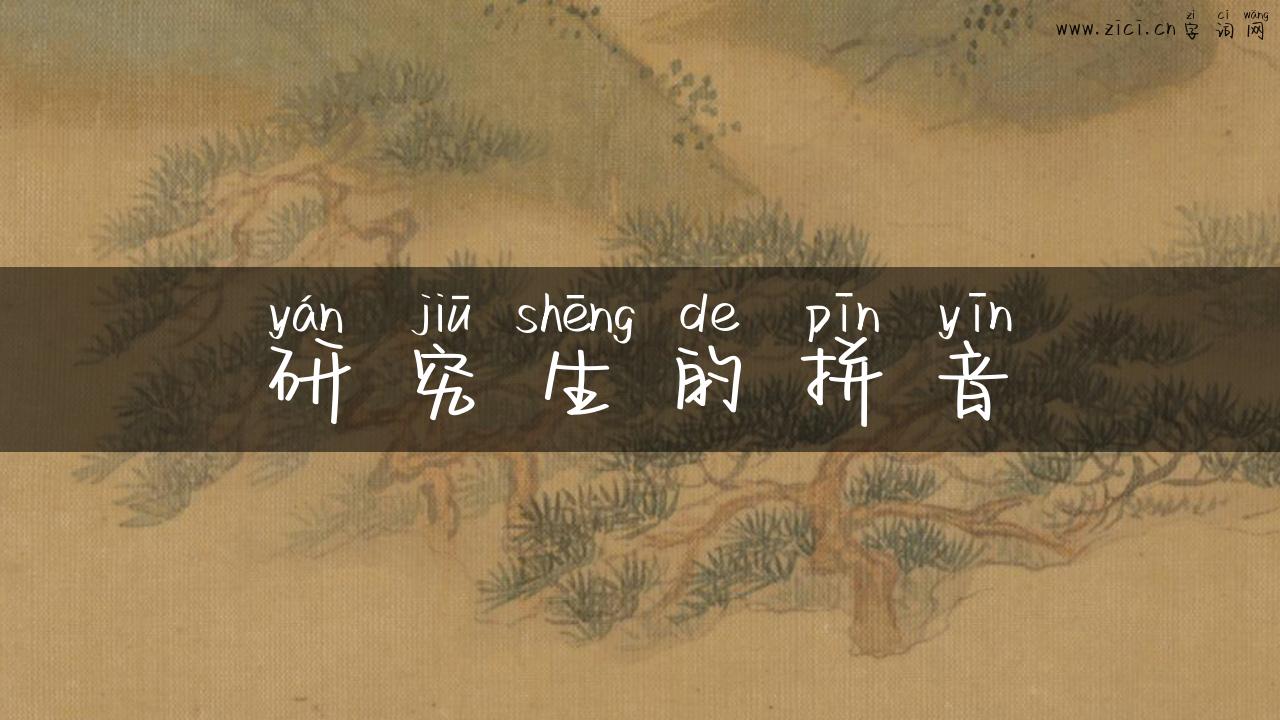 zì cí wǎng
www.zici.cn 字词网
yán jiū shēng de pīn yīn
研究生的拼音